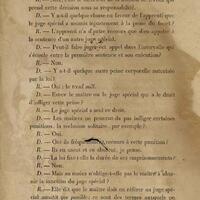 prend cette décision sous sa responsabilité.
D. — Y a-t-il quelque chance en faveur de l'apprenti que
le juge spécial a soumis injustement à la peine du fouet?
R. — L'apprenti n'a d'autre recours que d'en appeler à
la sentence d'un autre juge spécial.
D. — Peut-il faire juger cet appel dans l'intervalle qui
s'écoule entre la première sentence et son exécution?
R. — Non.
D. — Y a-t-il quelque autre peine corporelle autorisée
par la loi?
R. — Oui: le tread mill.
D. — Est-ce le maître ou le juge spécial qui a le droit
d'infliger cette peine?
R. — Le juge spécial a seul ce droit.
D. — Les maîtres ne peuvent-ils pas infliger certaines
punitions, la réclusion solitaire, par exemple?
R. — Oui.
D. — Ont-ils fréquemment recours à cette punition?
R. — Ils en usent et en abusent, je pense.
D. — La loi fixe-t-elle la durée de ces emprisonnements?
R. — Non.
D. — Mais au moins n'oblige-t-elle pas le maître à
la sanction du juge spécial?
R. — Elle dit que le maître doit en référer au juge spé-
cial aussitôt que possible; ce sont des termes auxquels on